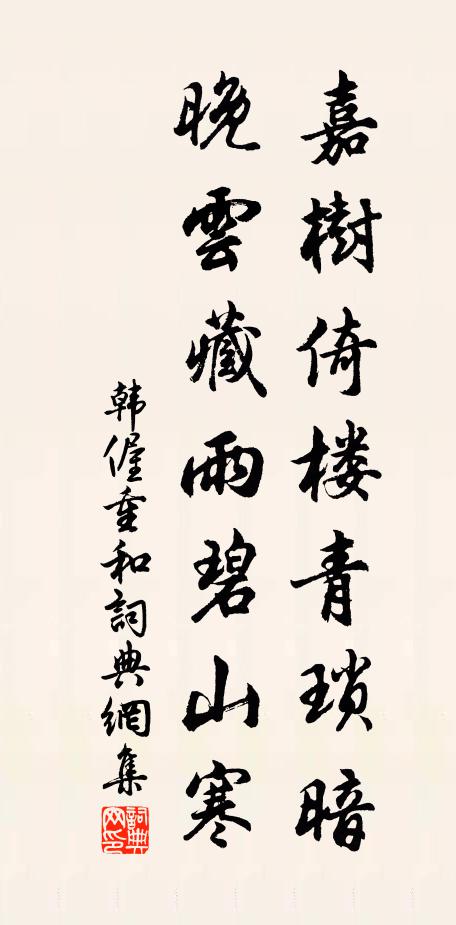 嘉樹倚楼青瑣暗
晚雲藏雨碧山寒
韩偓重和詞典網集
詞典网印